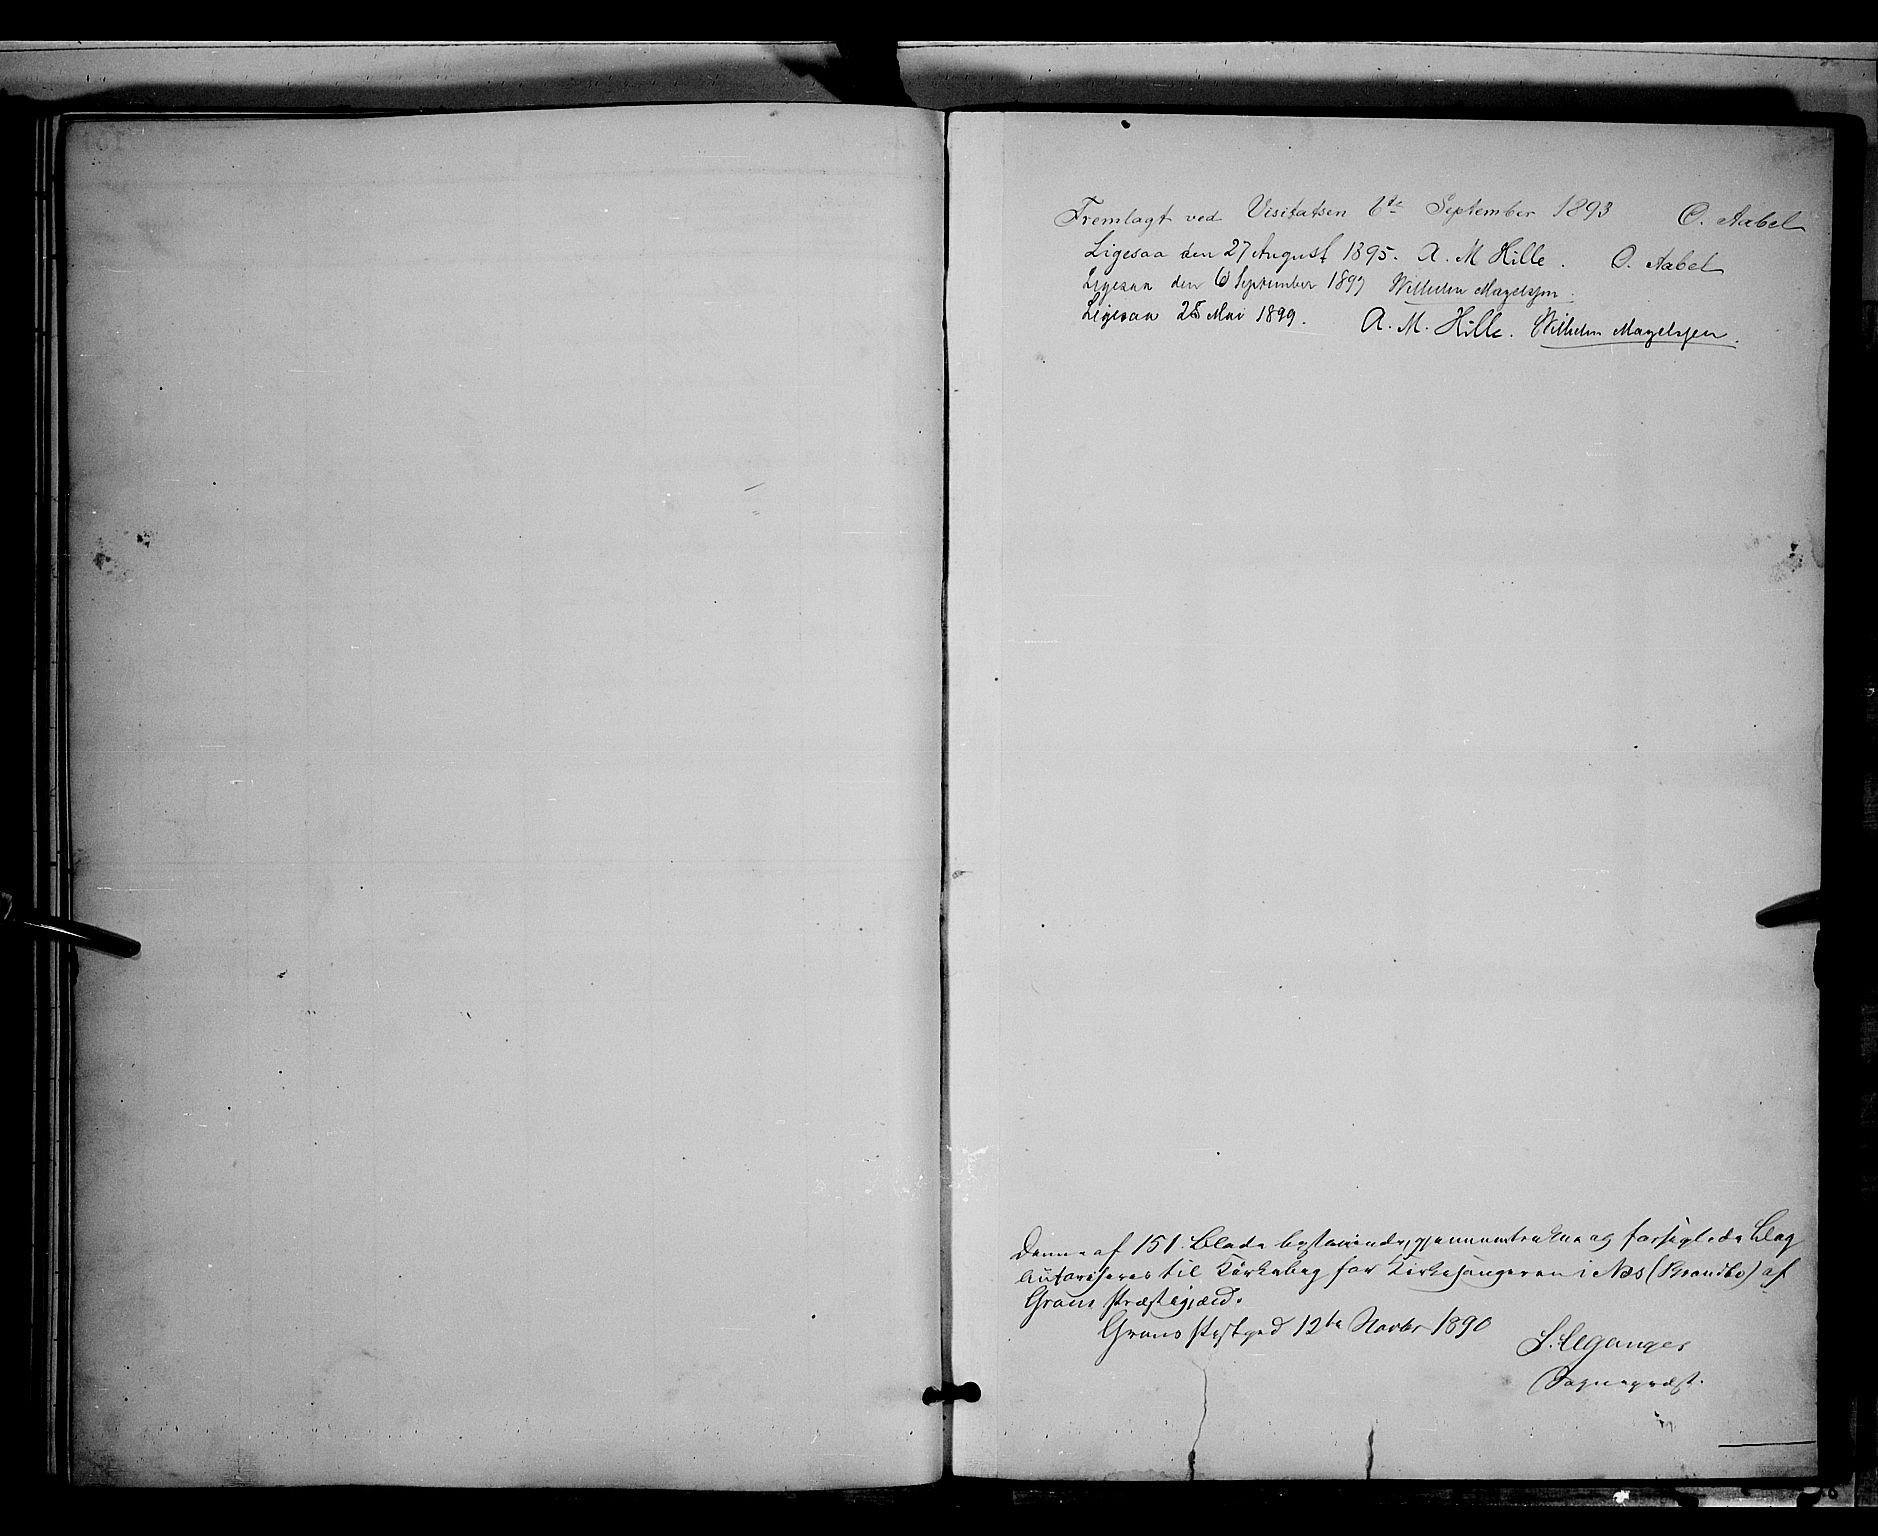 Fremlagt ved Visitatsen 6te September 1893 O. Aabel
Ligesaa den 27 August 1895. A. M Hille. O. Aabel
Ligesaa den 6 September 1897 Wilhelm Magelssen.
Ligesaa 25 Mai 1899. A. M. Hille. Wilhelm Magelssen.
Denne af 151 Blade bestaaende, gjennemtrukne og forseglede Bog
autoriseres til Kirkebog for Kirkesangeren i Næs (Brandbu) af
Grans Præstegjæld.
Grans Præstgrd 12te Novbr 1890
Sognepræst.